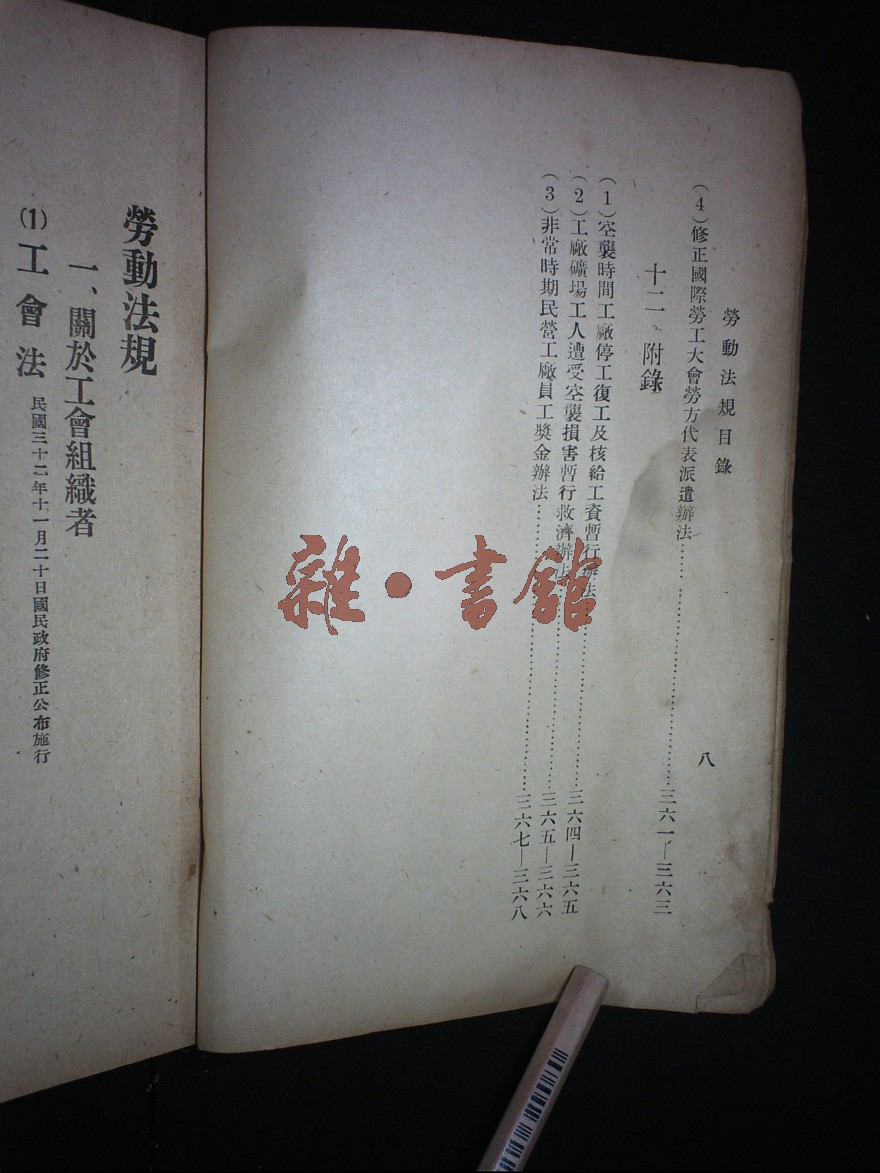 勞動法規目錄
八
(4)修正國際勞工大會勞方代表派遣辦法……三六一—三六三
十二、附錄
(1)空襲時間工廠停工復工及核給工資暫行辦法……三六四—三六五
(2)工廠礦場工人遭受空襲損害暫行救濟辦法……三六五—三六六
(3)非常時期民營工廠員工獎金辦法……三六七—三六八
勞動法規
一、關於工會組織者
(1)工會法 民國三十二年十一月二十日國民政府修正公布施行
雜·書館